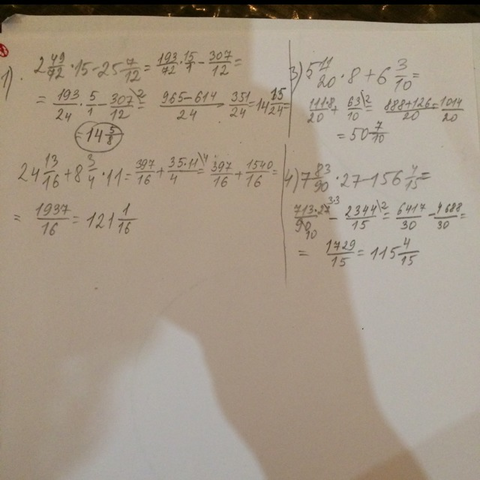 1) 2 49/72 · 15 − 25 7/12 = 193/72 · 15/1 − 307/12 =
= 193/24 · 5/1 − 307\2/12 = 965−614/24 = 351/24 = 14 15/24 =
= 14 5/8
24 13/16 + 8 3/4 · 11 = 397/16 + 35·11\4/4 = 397/16 + 1540/16 =
= 1937/16 = 121 1/16
3) 5 11/20 · 8 + 6 3/10 =
111·8/20 + 63\2/10 = 888+126/20 = 1014/20
= 50 7/10
4) 7 83/90 · 27 − 156 4/15 =
713·27 3·3/90 10 − 2344\2/15 = 6417/30 − 4688/30 =
= 1729/15 = 115 4/15